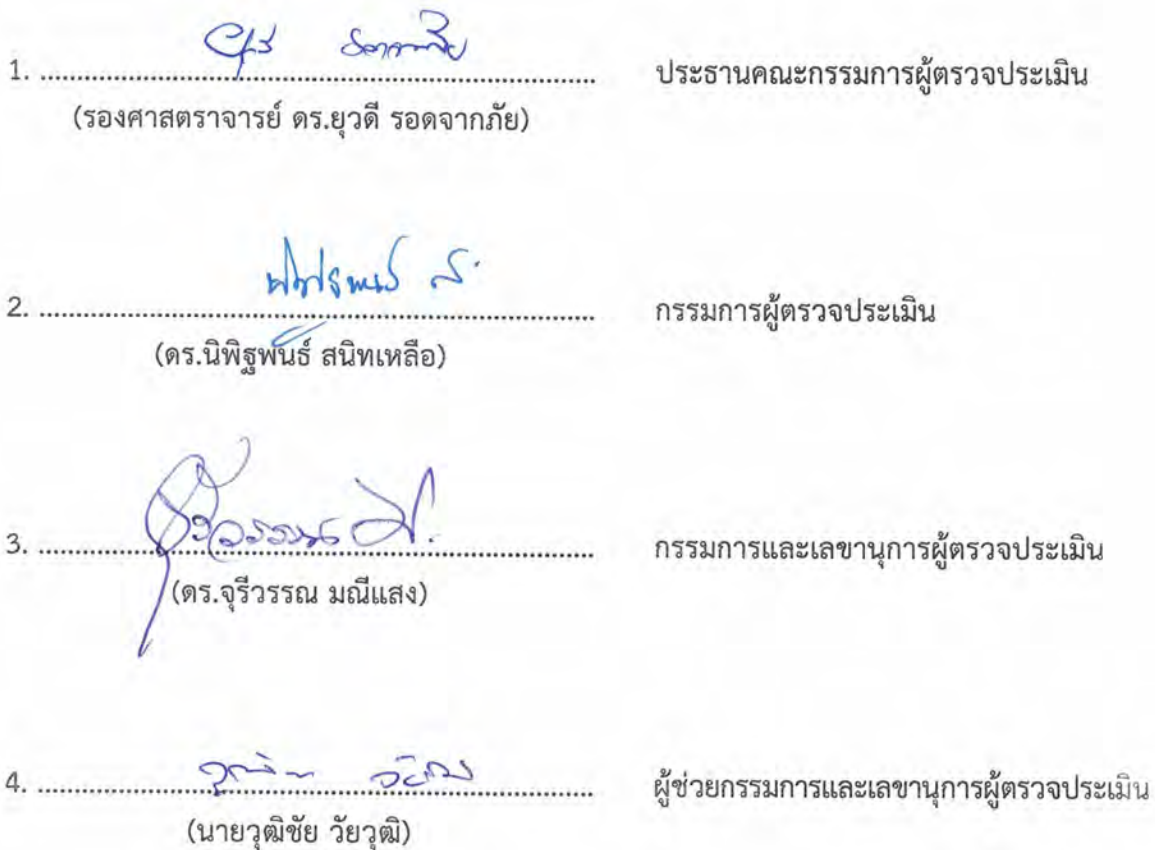 1. ........................................ ประธานคณะกรรมการผู้ตรวจประเมิน
(รองศาสตราจารย์ ดร.ยุวดี รอดจากภัย)
2. ........................................ กรรมการผู้ตรวจประเมิน
(ดร.นิพิฐพันธ์ สนิทเหลือ)
3. ........................................ กรรมการและเลขานุการผู้ตรวจประเมิน
(ดร.จุรีวรรณ มณีแสง)
4. ........................................ ผู้ช่วยกรรมการและเลขานุการผู้ตรวจประเมิน
(นายวุฒิชัย วัยวุฒิ)